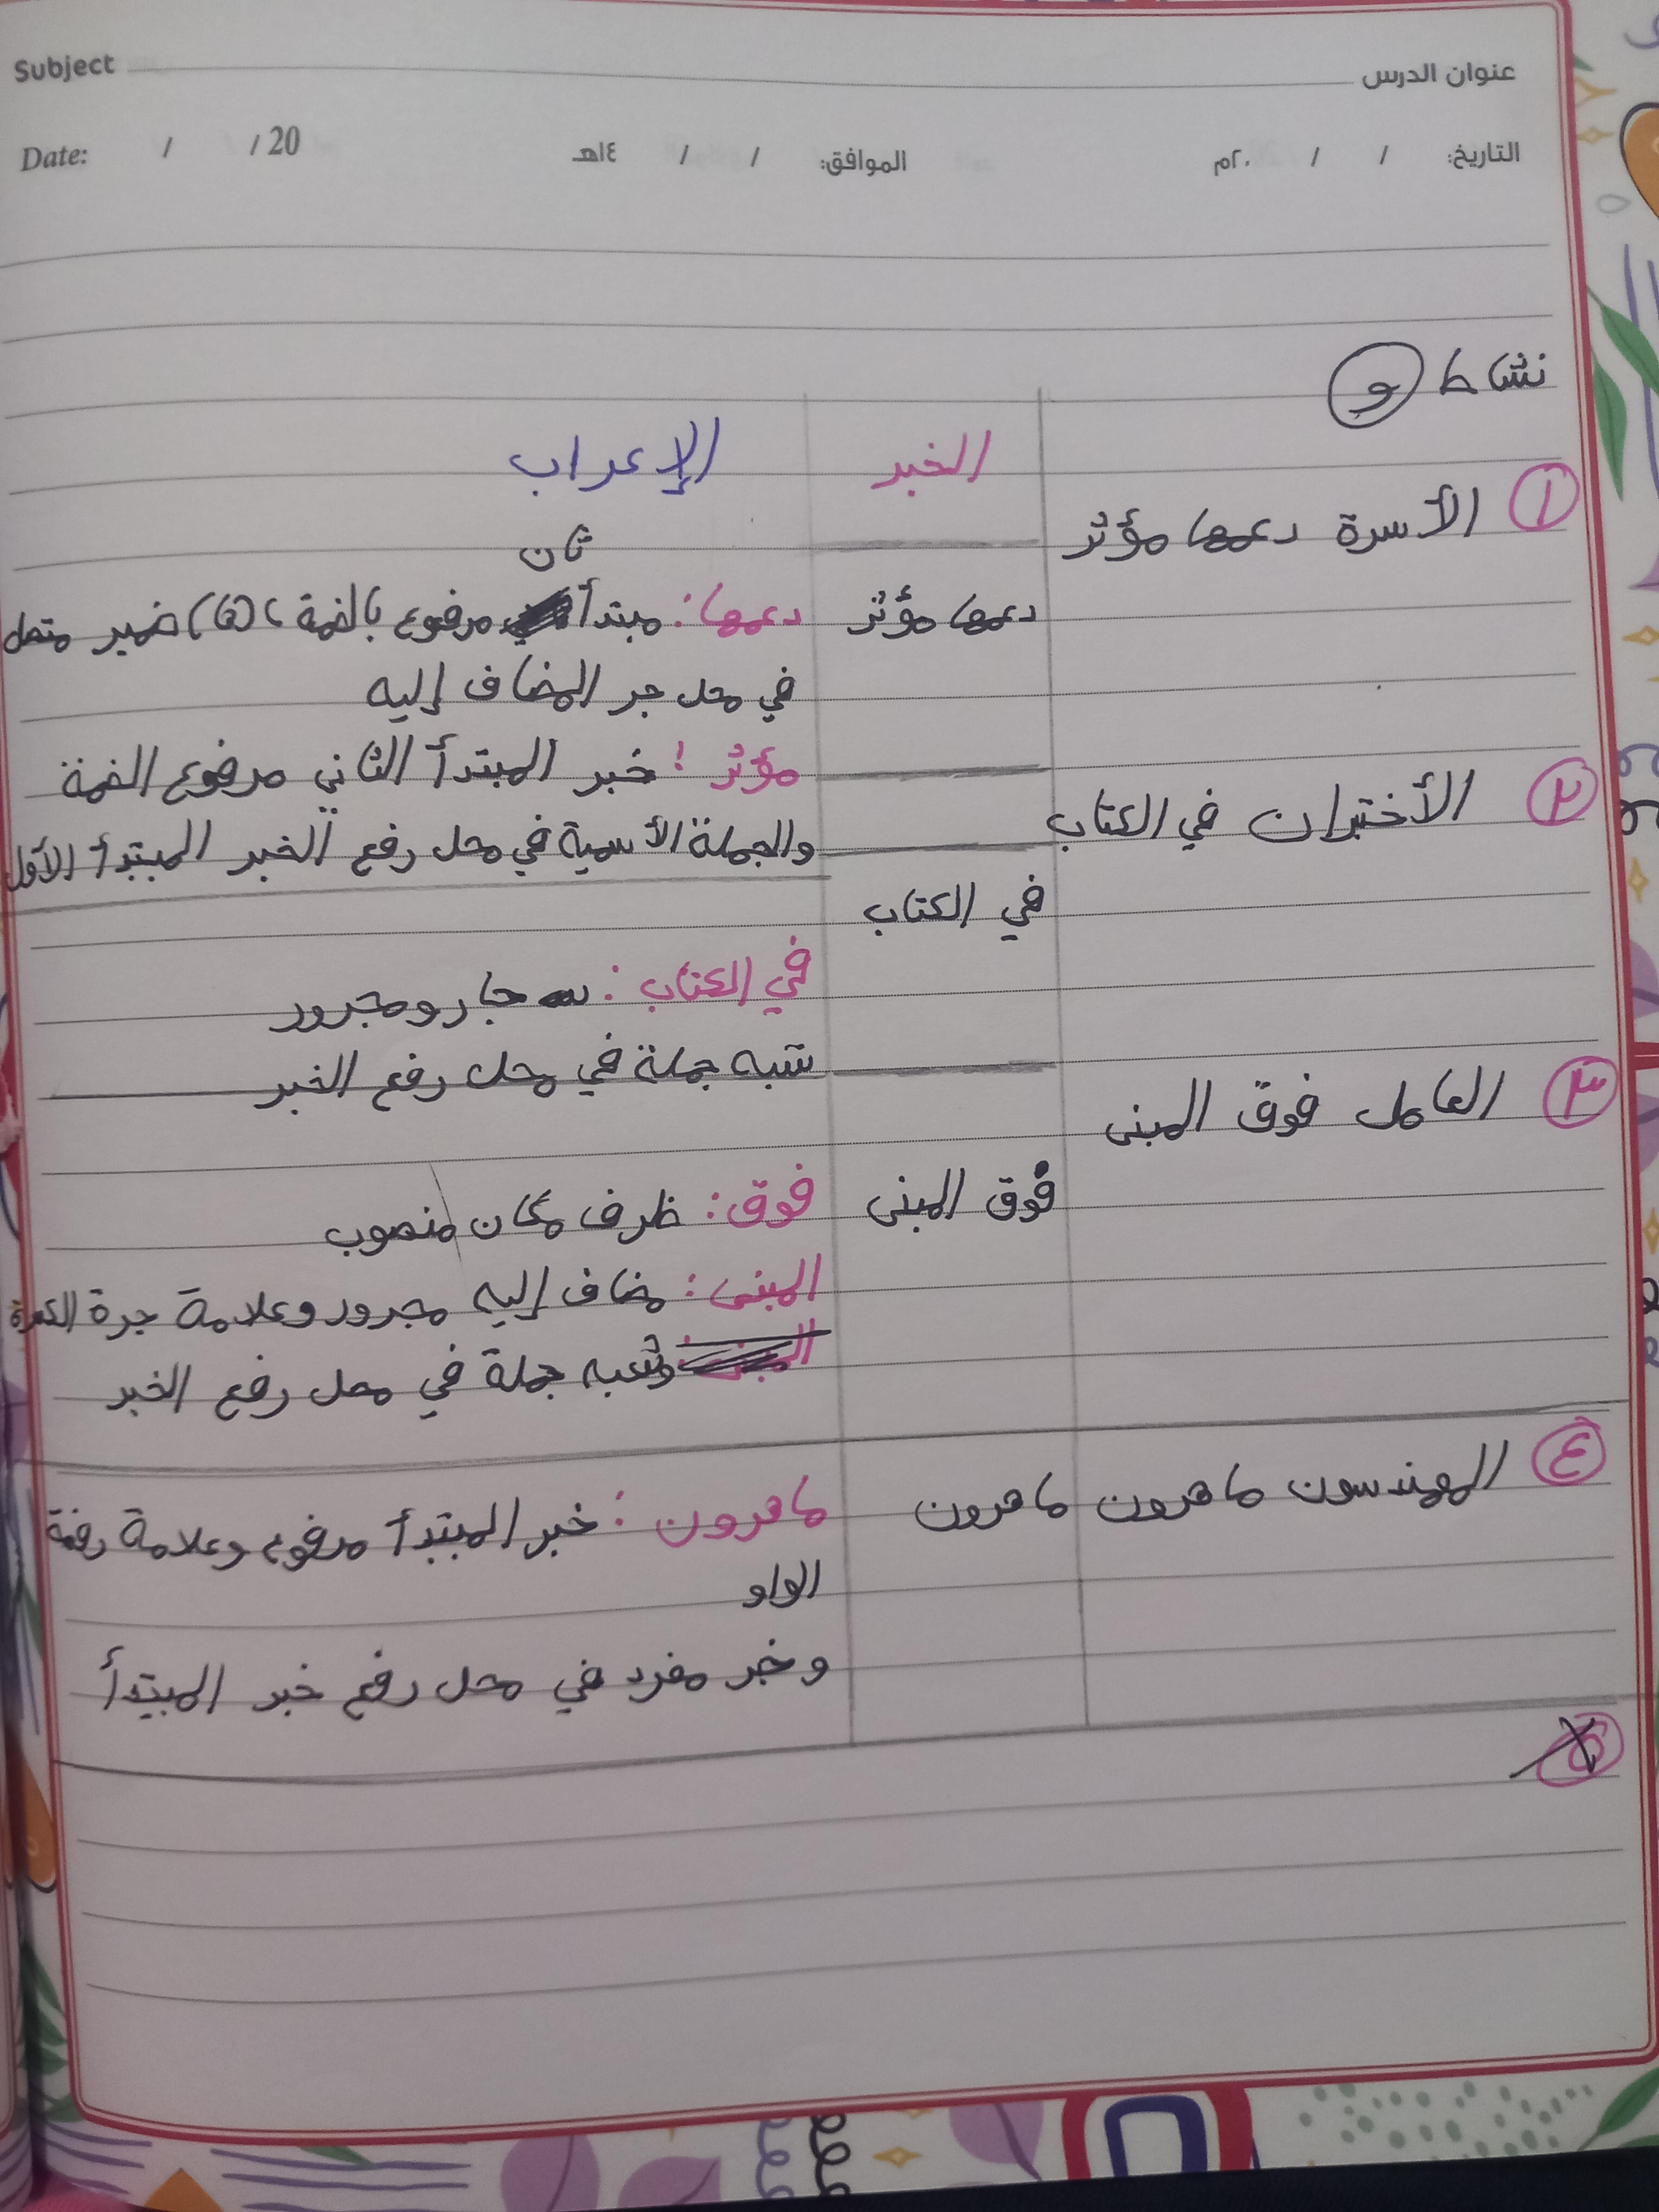 Subject
عنوان الدرس
التاريخ: / / ٢٠م
الموافق: / / ١٤هـ
Date: / / 20
نشاط و
الخبر
الإعراب
١ الأسرة دعمها مؤثر
دعمها مؤثر
ثان
دعمها: مبتدأ مرفوع بالضمة، (ها) ضمير متصل
في محل جر المضاف إليه
مؤثر: خبر المبتدأ الثاني مرفوع الضمة
والجملة الأسمية في محل رفع الخبر المبتدأ الأول
٢ الأختبران في الكتاب
في الكتاب
في الكتاب: جار ومجرور
شبه جملة في محل رفع الخبر
٣ العامل فوق المبنى
فوق المبنى
فوق: ظرف مكان منصوب
المبنى: مضاف إليه مجرور وعلامة جرة الكسرة
وشبه جملة في محل رفع الخبر
٤ المهندسون ماهرون
ماهرون
ماهرون: خبر المبتدأ مرفوع وعلامة رفعة
الواو
وخبر مفرد في محل رفع خبر المبتدأ